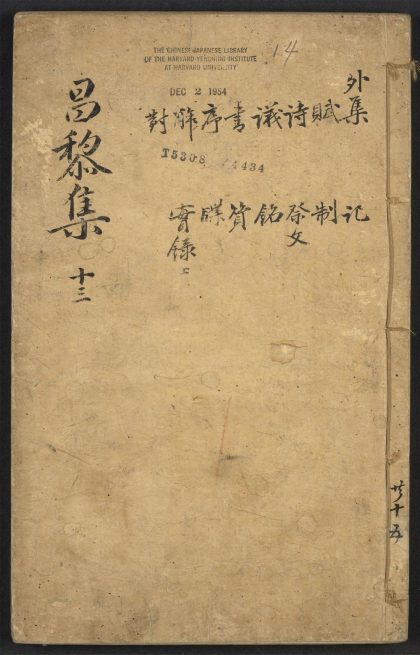 THE CHINESE-JAPANESE LIBRARY
OF THE HARVARD-YENCHING INSTITUTE
AT HARVARD UNIVERSITY
DEC 2 1954
14
外集
賦 詩 議 書 序 解 對
記 制 祭文 銘 贊 牒 實錄
T5308 4434
昌黎集 十三
共十五